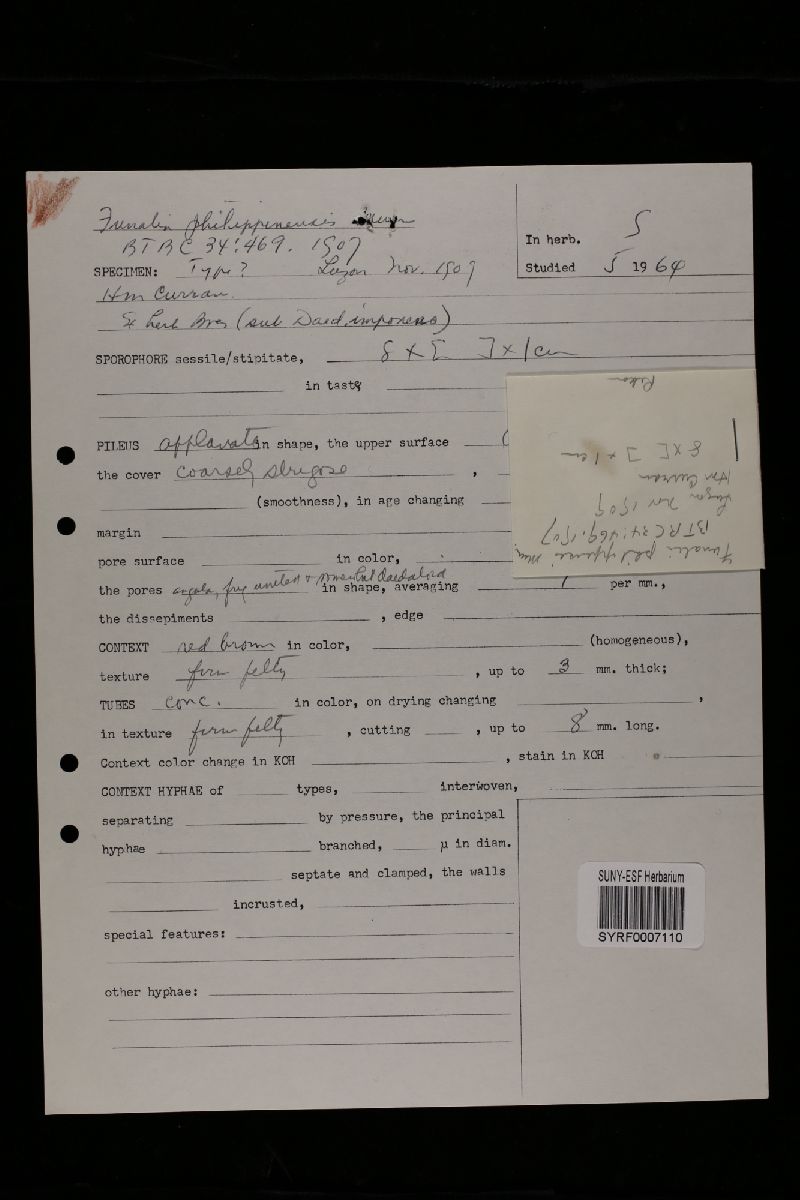 Funalia philippinensis
BTBC 34:469. 1907
In herb. S
SPECIMEN: Type? Luzon Nov. 1909
Studied 5 1964
Hm Curran.
Ex herb Bres (sub Daed. imponens)
SPOROPHORE sessile/stipitate, 8 x 5 x 1 cm
in taste
PILEUS applanate in shape, the upper surface
the cover coarsely strigose ,
(smoothness), in age changing
margin
pore surface in color,
the pores angular, freq united & somewhat daedaloid in shape, averaging 1 per mm.,
the dissepiments , edge
CONTEXT red brown in color, (homogeneous),
texture firm felty , up to 3 mm. thick;
TUBES conc. in color, on drying changing ,
in texture firm felty , cutting , up to 8 mm. long.
Context color change in KOH , stain in KOH
CONTEXT HYPHAE of types, interwoven,
separating by pressure, the principal
hyphae branched, µ in diam.
septate and clamped, the walls
incrusted,
special features:
other hyphae:
Funalia philippinensis
BTBC 34:469.1907
Luzon Nov 1909
Hm Curran
SUNY-ESF Herbarium
SYRF0007110